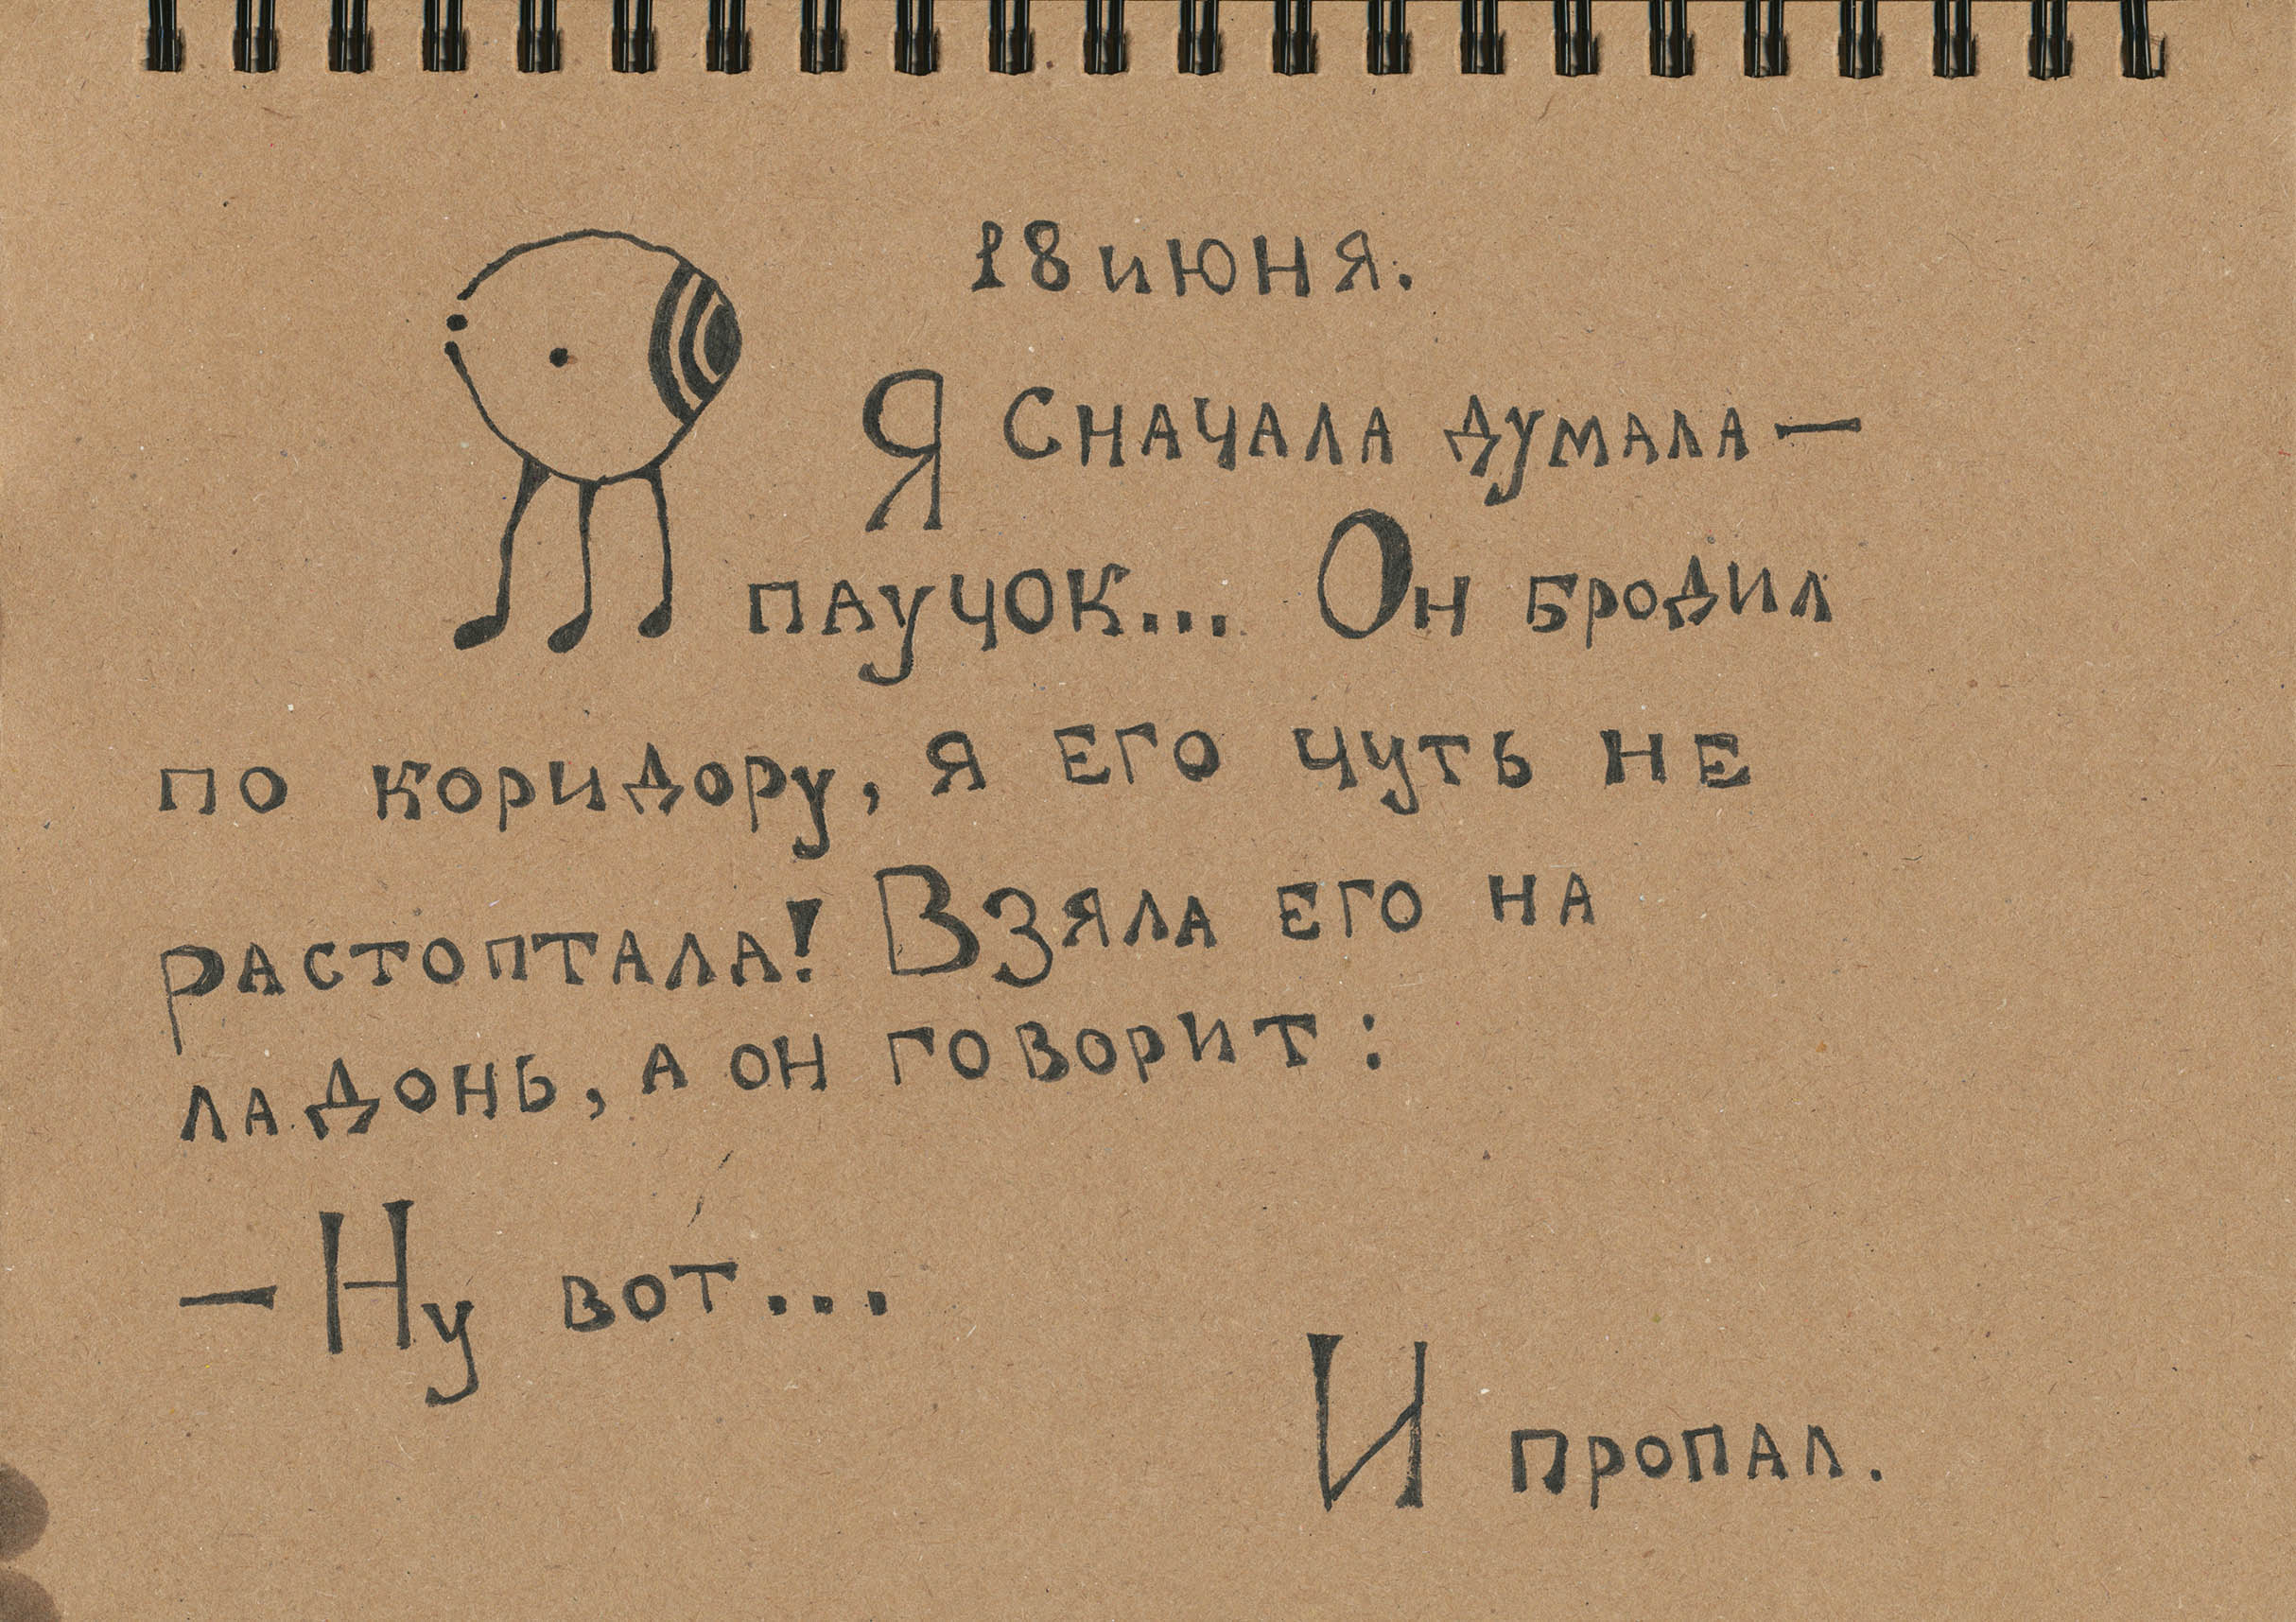 18 июня.
Я сначала думала —
паучок... Он бродил
по коридору, я его чуть не
растоптала! Взяла его на
ладонь, а он говорит:
— Ну вот...
И пропал.